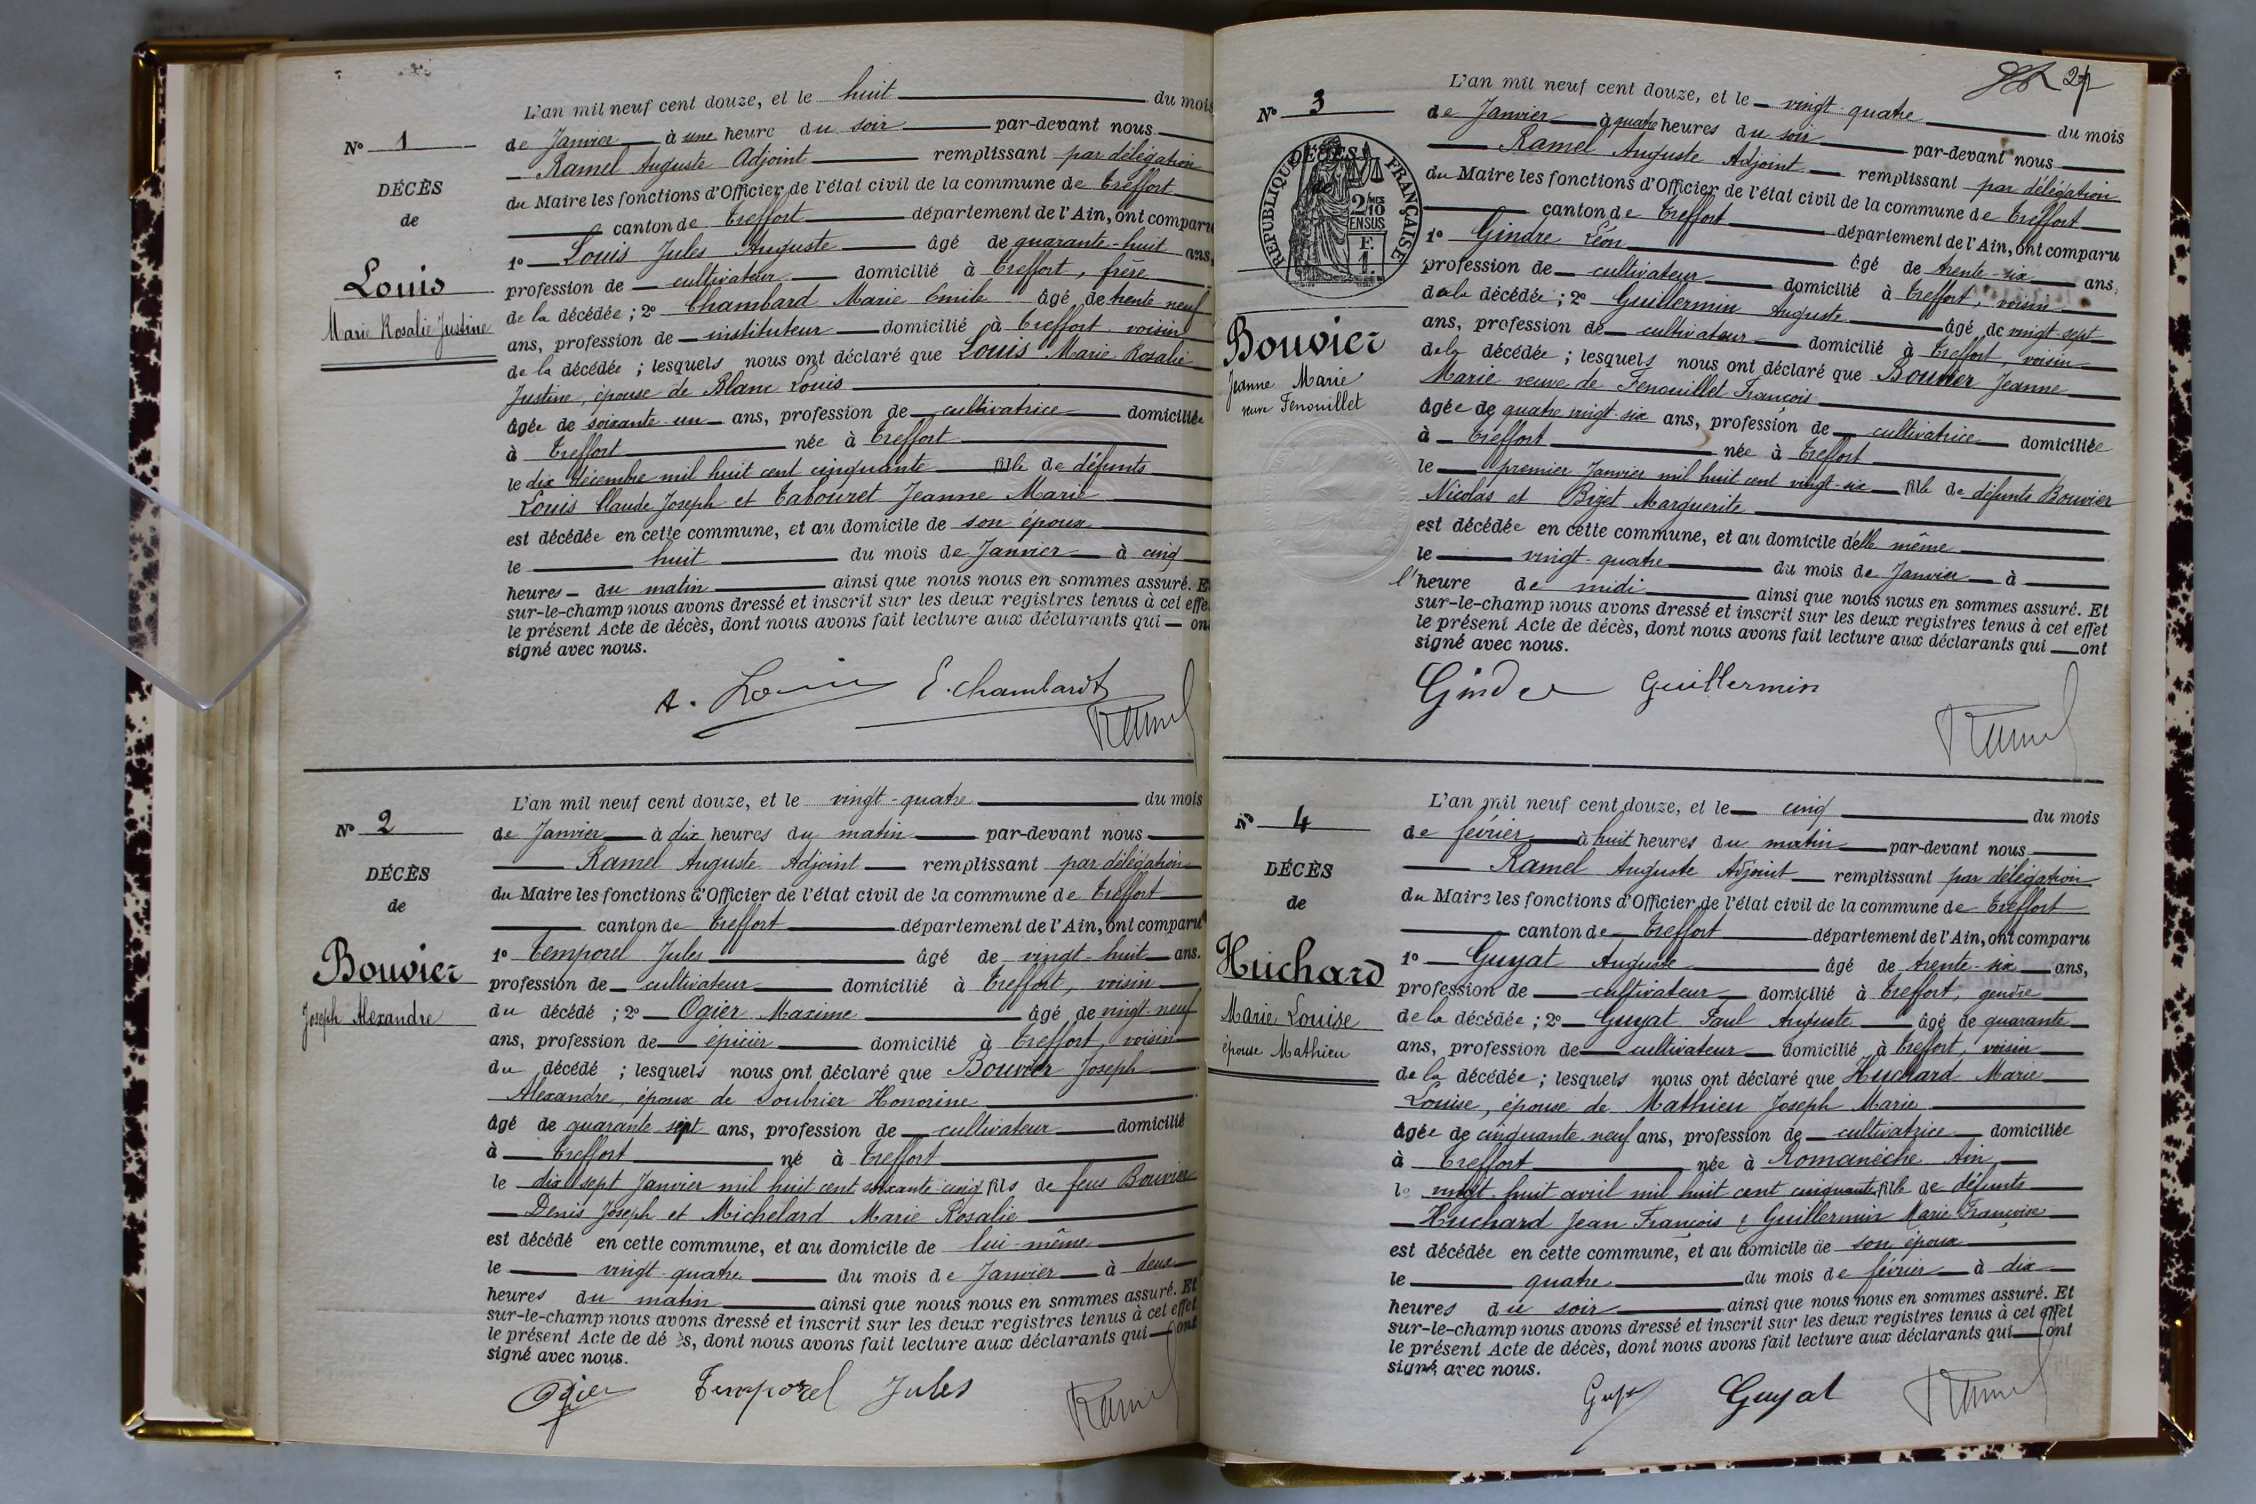 L'an mil neuf cent douze, et le huit du mois
N° 1
de Janvier à une heure du soir par-devant nous
Ramel Auguste Adjoint remplissant par délégation
DÉCÈS
du Maire les fonctions d'Officier de l'état civil de la commune de Treffort
de
canton de Treffort département de l'Ain, ont comparu
1° Louis Jules Auguste âgé de quarante-huit ans,
Louis
profession de cultivateur domicilié à Treffort, frère
Marie Rosalie Justine
de la décédée ; 2° Chambard Marie Emile âgé de trente neuf
ans, profession de instituteur domicilié à Treffort voisin
de la décédée ; lesquels nous ont déclaré que Louis Marie Rosalie
Justine, épouse de Blanc Louis
âgée de soixante-un ans, profession de cultivatrice domiciliée
à Treffort née à Treffort
le dix décembre mil huit cent cinquante fille de défunts
Louis Claude Joseph et Tabouret Jeanne Marie
est décédée en cette commune, et au domicile de son époux
le huit du mois de Janvier à cinq
heures du matin ainsi que nous nous en sommes assuré. Et
sur-le-champ nous avons dressé et inscrit sur les deux registres tenus à cet effe
le présent Acte de décès, dont nous avons fait lecture aux déclarants qui on
signé avec nous.
A. Louis E. Chambard
Ramel
L'an mil neuf cent douze, et le vingt-quatre du mois
N° 2
de Janvier à dix heures du matin par-devant nous
Ramel Auguste Adjoint remplissant par délégation
DÉCÈS
du Maire les fonctions d'Officier de l'état civil de la commune de Treffort
de
canton de Treffort département de l'Ain, ont comparu
1° Temporel Jules âgé de vingt-huit ans.
Bouvier
profession de cultivateur domicilié à Treffort, voisin
Joseph Alexandre
du décédé ; 2° Ogier Maxime âgé de vingt-neuf
ans, profession de épicier domicilié à Treffort, voisin
du décédé ; lesquels nous ont déclaré que Bouvier Joseph
Alexandre, époux de Soubrier Honorine
âgé de quarante-sept ans, profession de cultivateur domicilié
à Treffort né à Treffort
le dix sept Janvier mil huit cent soixante cinq fils de feus Bouvier
Denis Joseph et Michelard Marie Rosalie
est décédé en cette commune, et au domicile de lui-même
le vingt-quatre du mois de Janvier à deux
heures du matin ainsi que nous nous en sommes assuré. Et
sur-le-champ nous avons dressé et inscrit sur les deux registres tenus à cet effet
le présent Acte de dé ès, dont nous avons fait lecture aux déclarants qui ont
signé avec nous.
Ogier Temporel Jules
Ramel
27
L'an mil neuf cent douze, et le vingt-quatre du mois
N° 3
de Janvier à quatre heures du soir par-devant nous
Ramel Auguste Adjoint remplissant par délégation
DÉCÈS
de
RÉPUBLIQUE FRANÇAISE
2/10 MES
EN SUS
F.
1.
du Maire les fonctions d'Officier de l'état civil de la commune de Treffort
canton de Treffort département de l'Ain, ont comparu
1° Gindre Léon âgé de trente-six ans,
profession de cultivateur domicilié à Treffort, voisin
de la décédée ; 2° Guillermin Auguste âgé de vingt-sept
Bouvier
Jeanne Marie
veuve Fenouillet
ans, profession de cultivateur domicilié à Treffort, voisin
de la décédée ; lesquels nous ont déclaré que Bouvier Jeanne
Marie veuve de Fenouillet François
âgée de quatre vingt-six ans, profession de cultivatrice domiciliée
à Treffort née à Treffort
le premier Janvier mil huit cent vingt-six fille de défunts Bouvier
Nicolas et Bizet Marguerite
est décédée en cette commune, et au domicile d'elle même
le vingt-quatre du mois de Janvier à
l'heure de midi ainsi que nous nous en sommes assuré. Et
sur-le-champ nous avons dressé et inscrit sur les deux registres tenus à cet effet
le présent Acte de décès, dont nous avons fait lecture aux déclarants qui ont
signé avec nous.
Gindre Guillermin
Ramel
L'an mil neuf cent douze, et le cinq du mois
N° 4
de février à huit heures du matin par-devant nous
Ramel Auguste Adjoint remplissant par délégation
DÉCÈS
du Maire les fonctions d'Officier de l'état civil de la commune de Treffort
de
canton de Treffort département de l'Ain, ont comparu
1° Guyat Auguste âgé de trente-six ans,
Huchard
profession de cultivateur domicilié à Treffort, gendre
Marie Louise
de la décédée ; 2° Guyat Paul Auguste âgé de quarante
épouse Mathieu
ans, profession de cultivateur domicilié à Treffort, voisin
de la décédée ; lesquels nous ont déclaré que Huchard Marie
Louise, épouse de Mathieu Joseph Marie
âgée de cinquante neuf ans, profession de cultivatrice domiciliée
à Treffort née à Romanèche Ain
le vingt-huit avril mil huit cent cinquante fille de défunts
Huchard Jean François & Guillermin Marie Françoise
est décédée en cette commune, et au domicile de son époux
le quatre du mois de février à dix
heures du soir ainsi que nous nous en sommes assuré. Et
sur-le-champ nous avons dressé et inscrit sur les deux registres tenus à cet effet
le présent Acte de décès, dont nous avons fait lecture aux déclarants qui ont
signé avec nous.
Guyat Guyat
Ramel